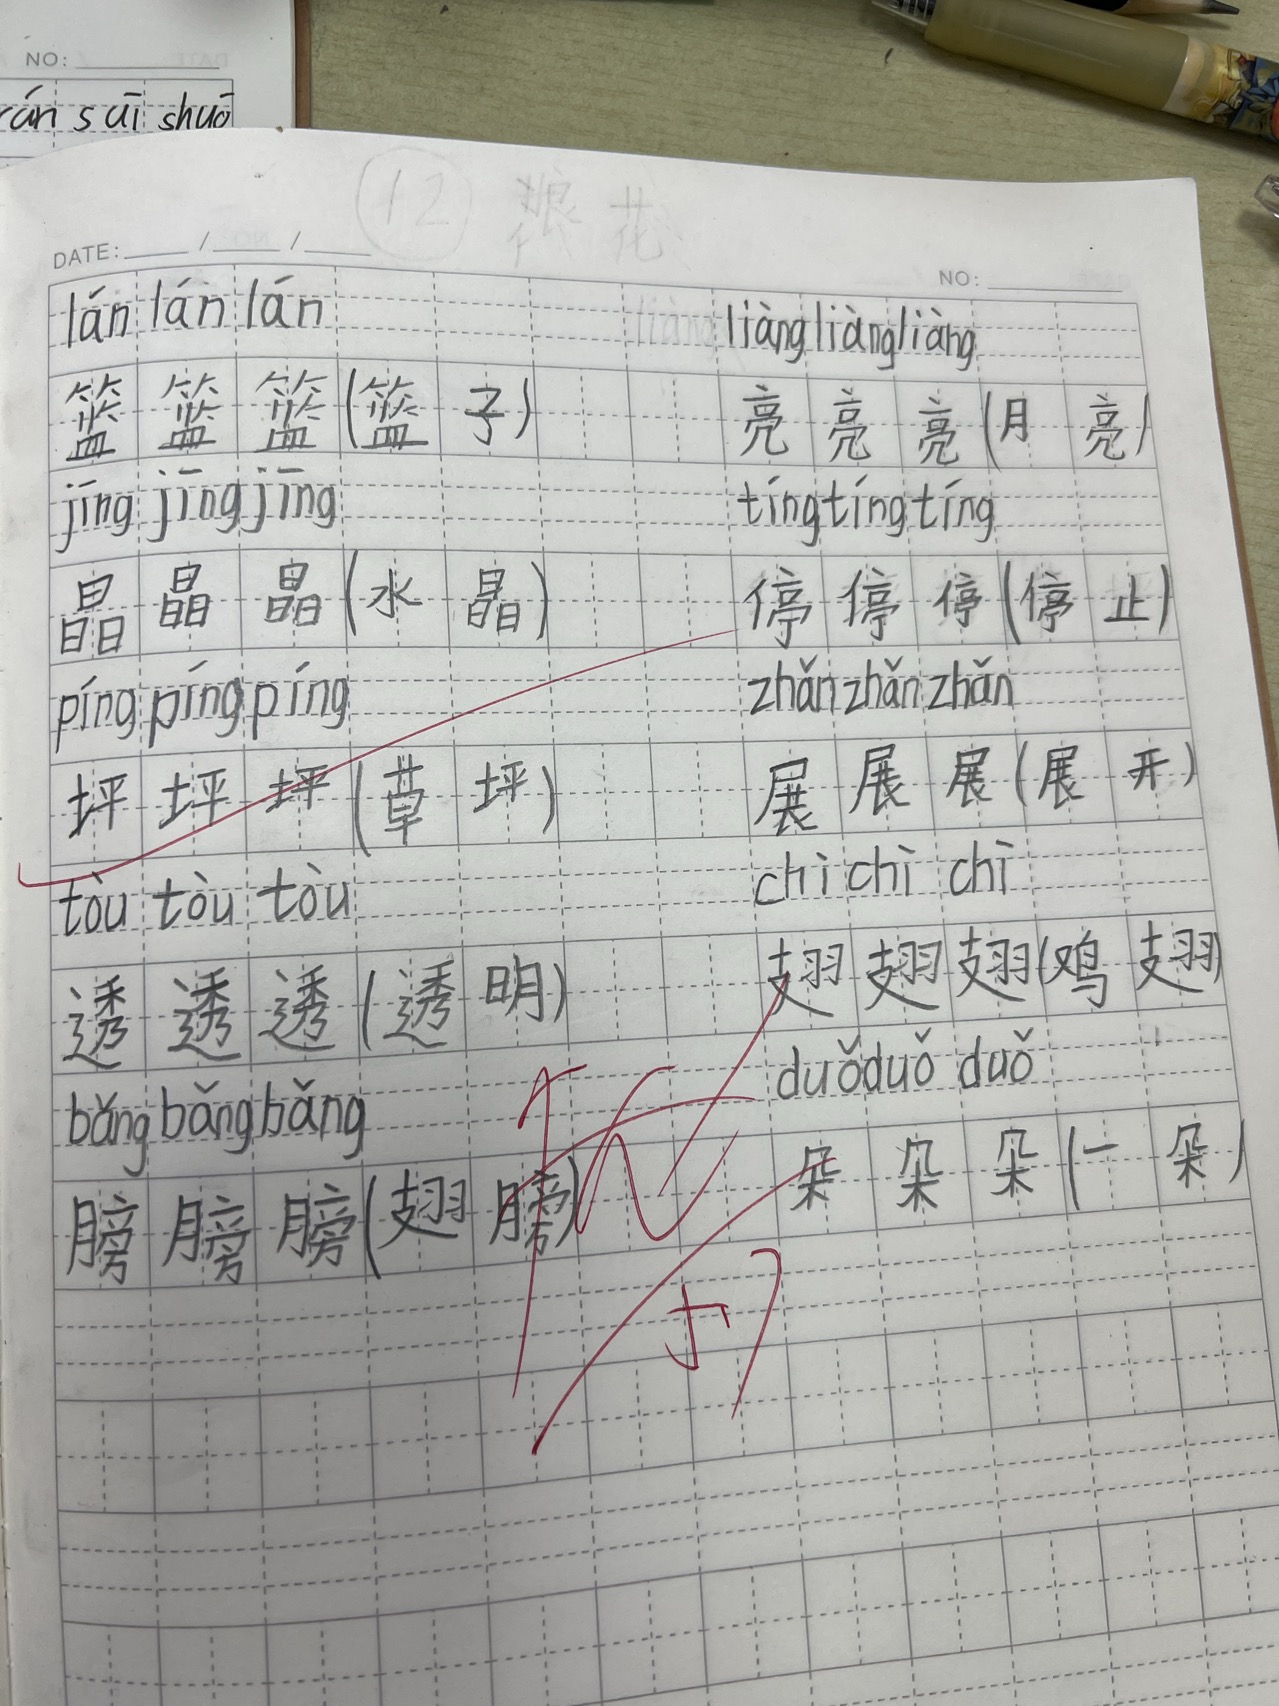 NO:
rán suī shuō
12 浪花
DATE: / /
NO:
lán lán lán liàng liàng liàng liàng
篮 篮 篮 (篮 子) 亮 亮 亮 (月 亮)
jīng jīng jīng tíng tíng tíng
晶 晶 晶 (水 晶) 停 停 停 (停 止)
píng píng píng zhǎn zhǎn zhǎn
坪 坪 坪 (草 坪) 展 展 展 (展 开)
tòu tòu tòu chì chì chì
透 透 透 (透 明) 翅 翅 翅 (鸡 翅)
bǎng bǎng bǎng duǒ duǒ duǒ
膀 膀 膀 (翅 膀) 朵 朵 朵 (一 朵)